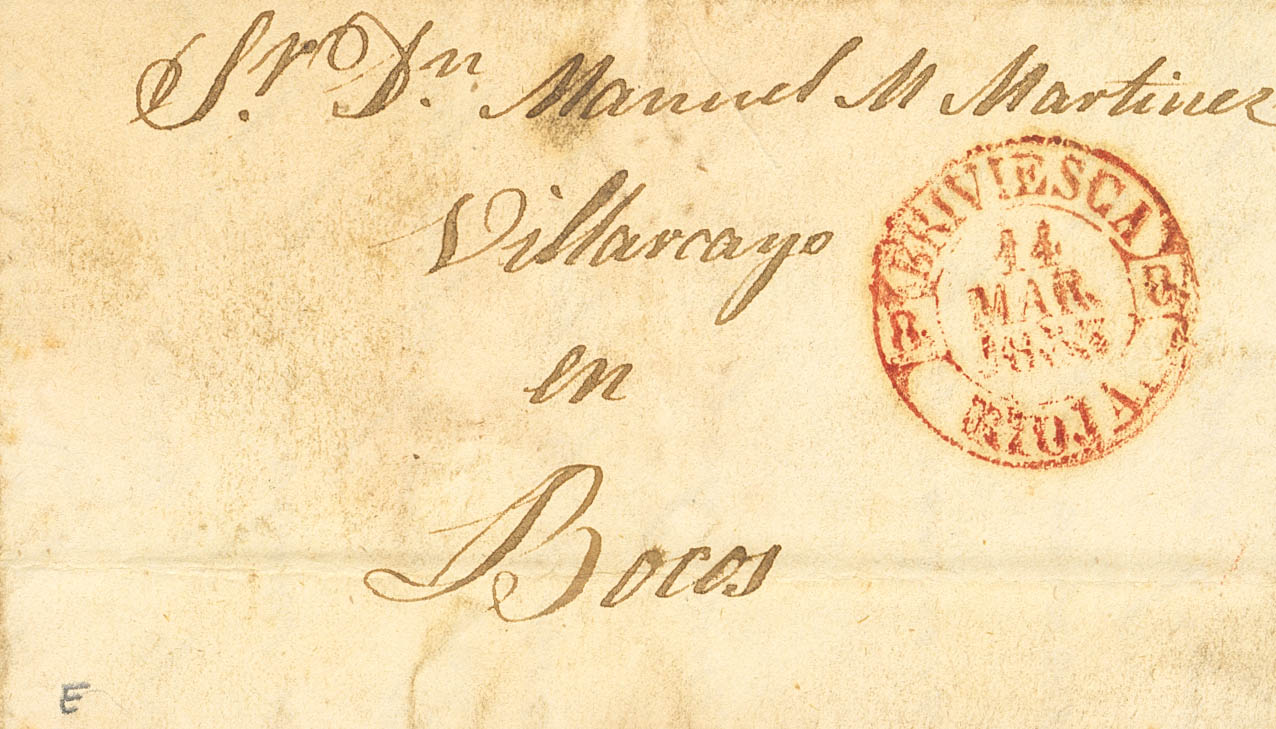 Sr. Dn. Manuel M Martinez
BRIVIESCA
14
MAR
R.
B
RIOJA.
Villarcayo
en
Bocos
E